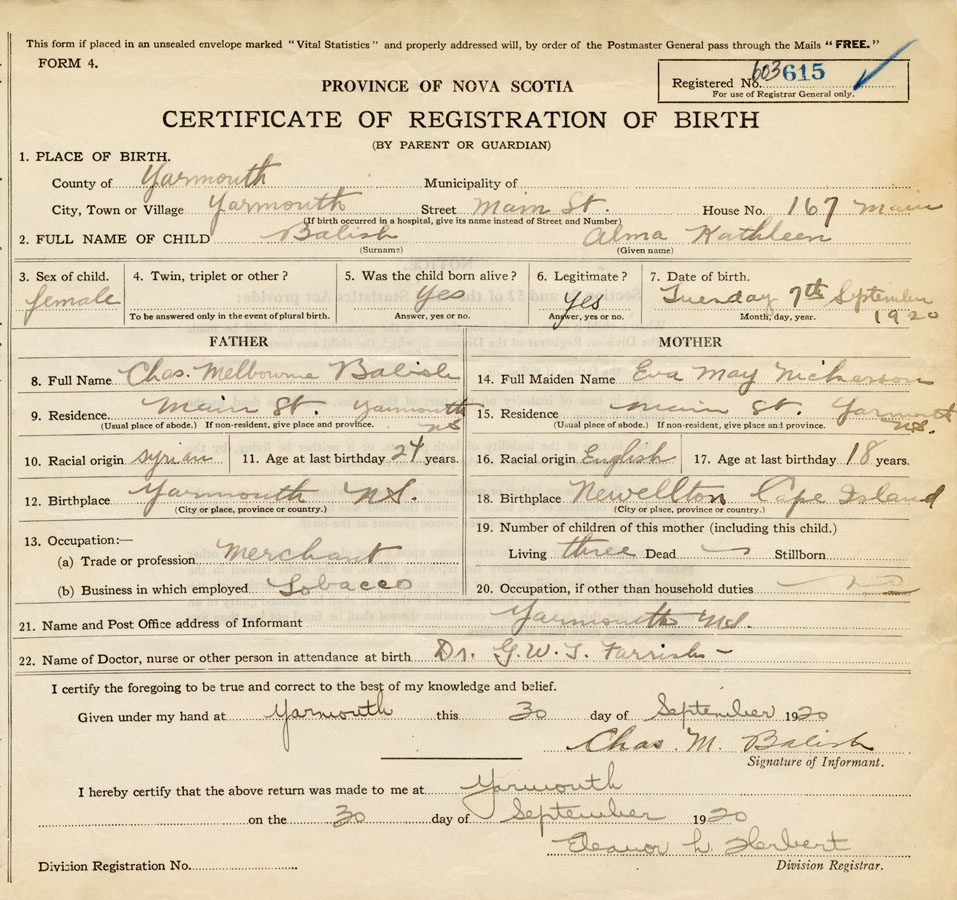 This form if placed in an unsealed envelope marked "Vital Statistics" and properly addressed will, by order of the Postmaster General pass through the Mails "FREE."
FORM 4.
PROVINCE OF NOVA SCOTIA
Registered No. 603615
For use of Registrar General only.
CERTIFICATE OF REGISTRATION OF BIRTH
(BY PARENT OR GUARDIAN)
1. PLACE OF BIRTH.
County of Yarmouth Municipality of
City, Town or Village Yarmouth Street Main St. House No. 167 Main
(If birth occurred in a hospital, give its name instead of Street and Number)
2. FULL NAME OF CHILD Balish Alma Kathleen
(Surname) (Given name)
3. Sex of child. 4. Twin, triplet or other? 5. Was the child born alive? 6. Legitimate? 7. Date of birth.
female Yes Yes Tuesday 7th September
To be answered only in the event of plural birth. Answer, yes or no. Answer, yes or no. Month, day, year. 1920
FATHER MOTHER
8. Full Name Chas. Melbourne Balish 14. Full Maiden Name Eva May Nickerson
9. Residence Main St. Yarmouth NS 15. Residence Main St. Yarmouth NS.
(Usual place of abode.) If non-resident, give place and province. (Usual place of abode.) If non-resident, give place and province.
10. Racial origin Syrian 11. Age at last birthday 24 years. 16. Racial origin English 17. Age at last birthday 18 years.
12. Birthplace Yarmouth NS. 18. Birthplace Newellton Cape Island
(City or place, province or country.) (City or place, province or country.)
13. Occupation:— 19. Number of children of this mother (including this child.)
(a) Trade or profession Merchant Living three Dead Stillborn
(b) Business in which employed Tobacco 20. Occupation, if other than household duties
21. Name and Post Office address of Informant Yarmouth NS.
22. Name of Doctor, nurse or other person in attendance at birth Dr. G.W.T. Farrish -
I certify the foregoing to be true and correct to the best of my knowledge and belief.
Given under my hand at Yarmouth this 30 day of September 1920
Chas. M. Balish
Signature of Informant.
I hereby certify that the above return was made to me at Yarmouth
on the 30 day of September 1920
Eleanor L. Herbert
Division Registration No. Division Registrar.